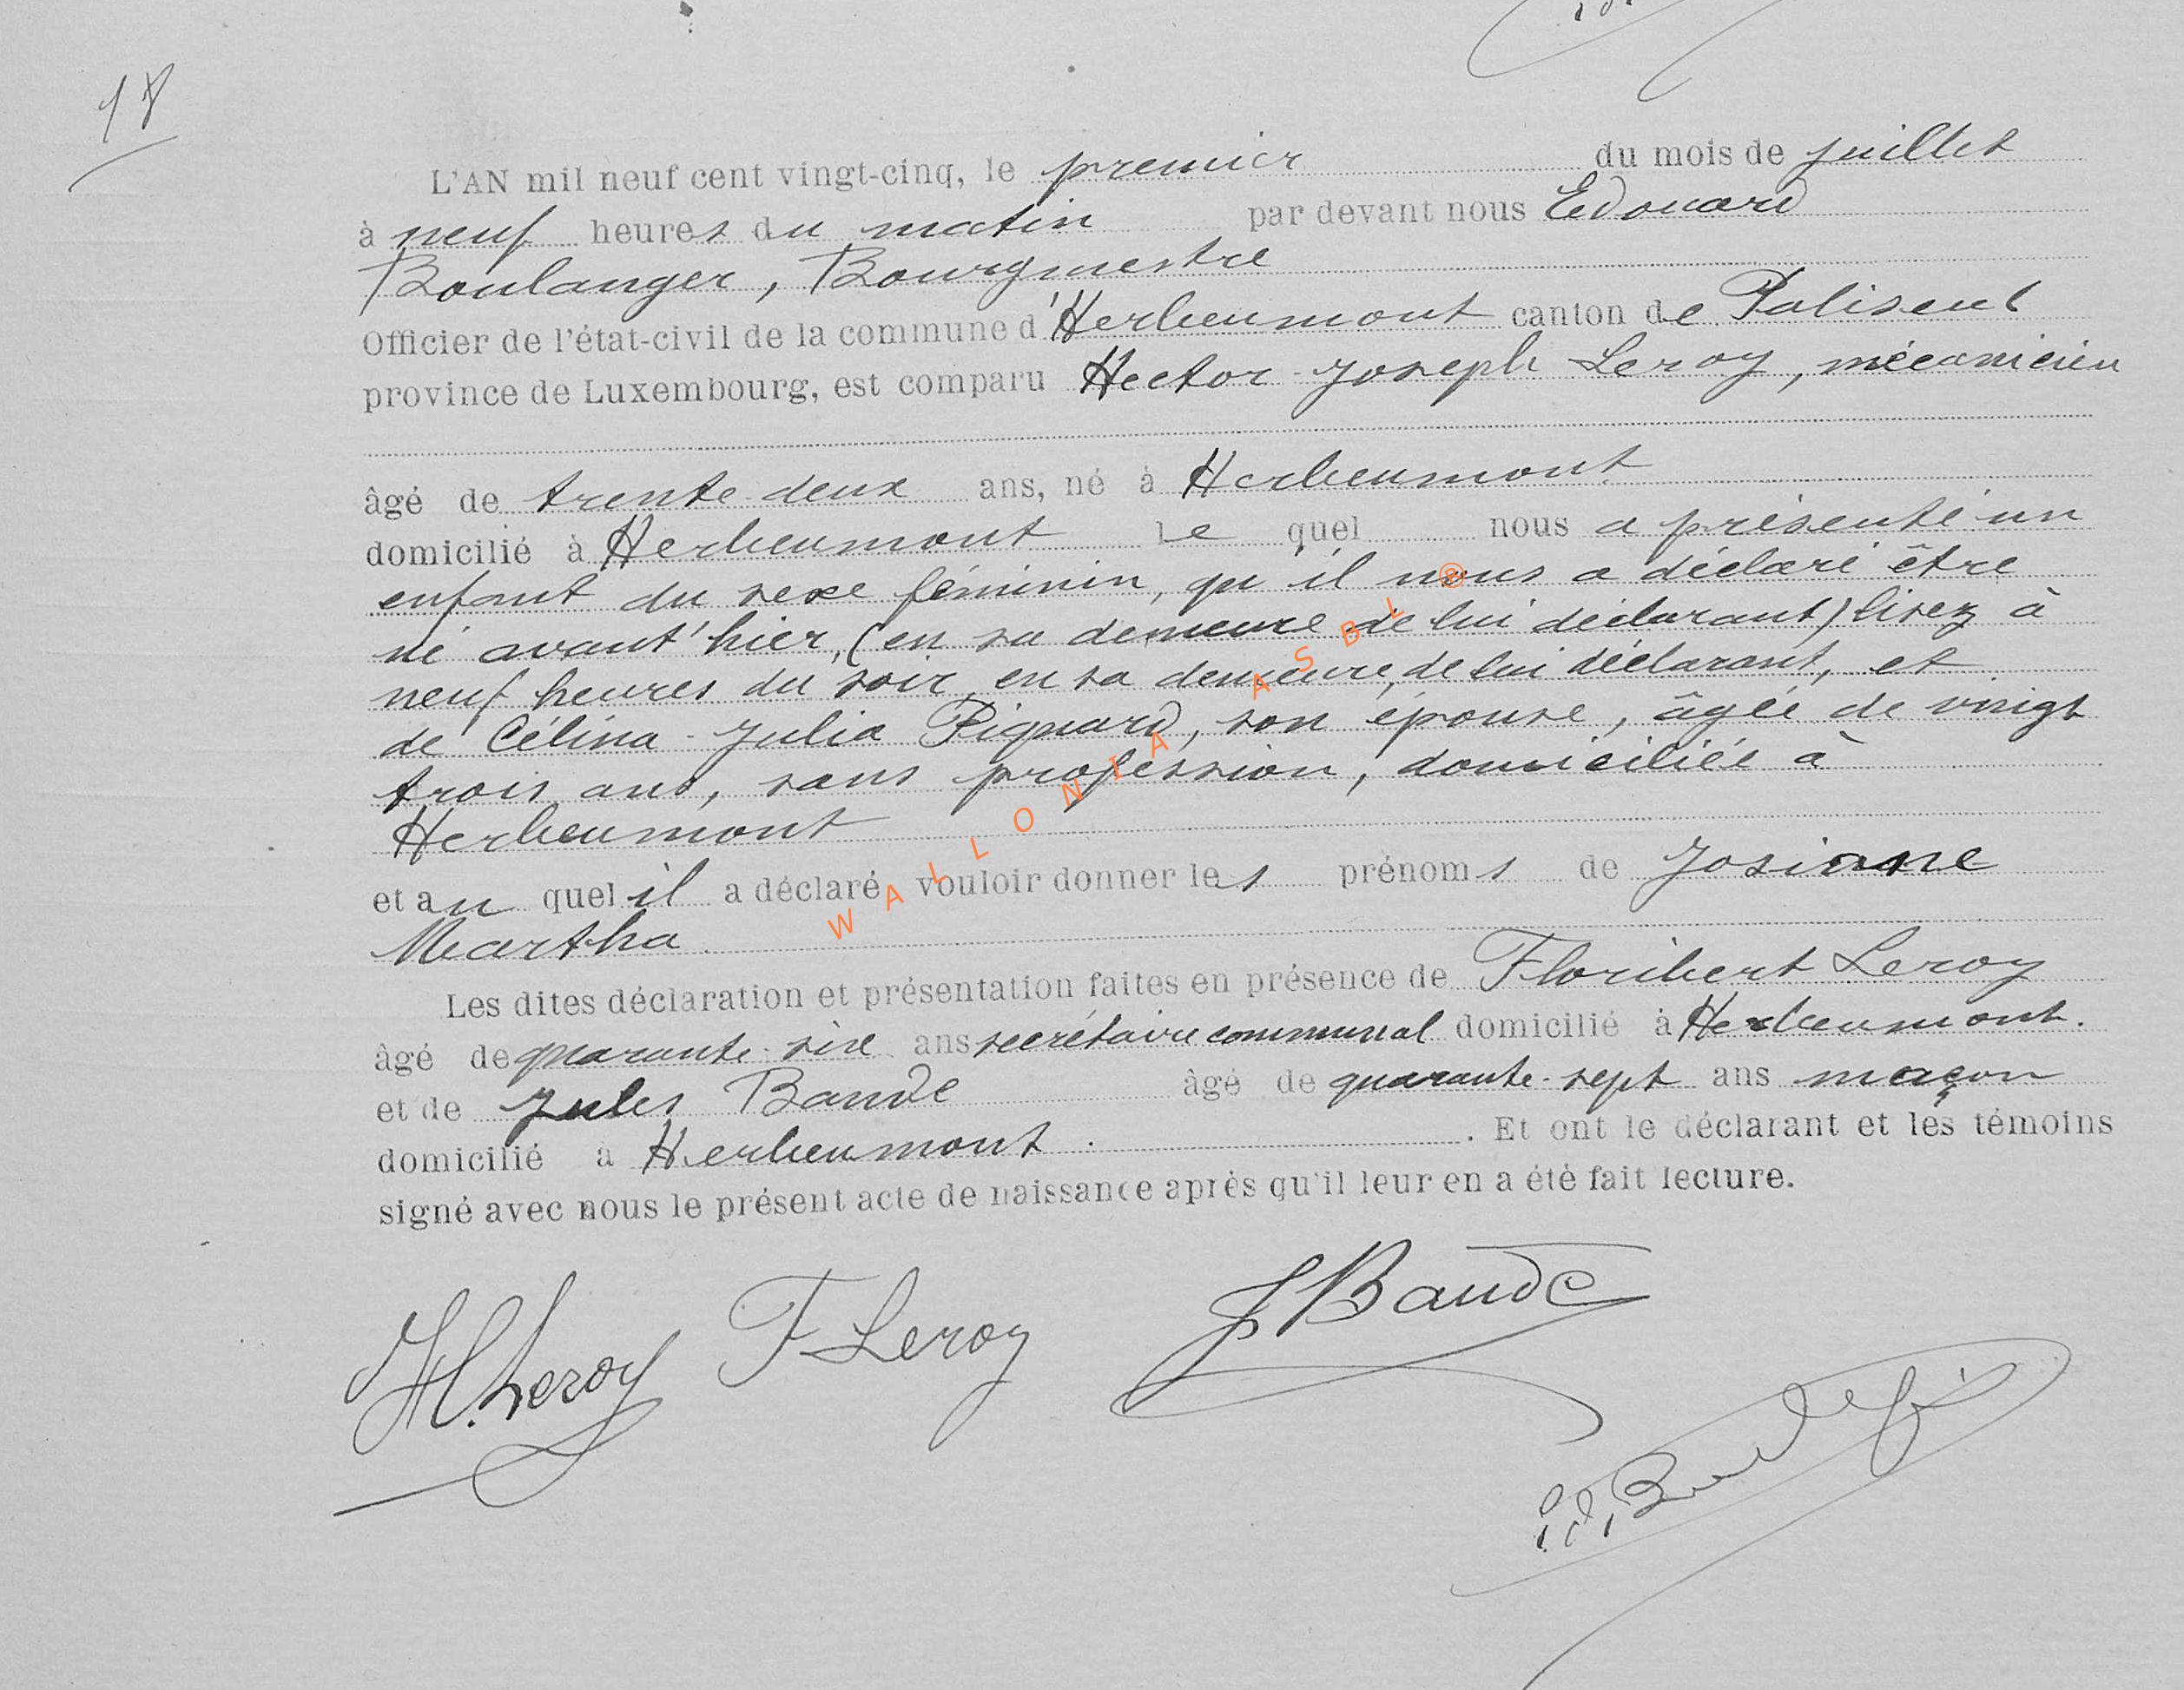 18
L'AN mil neuf cent vingt-cinq, le premier du mois de juillet
à neuf heures du matin par devant nous Edouard
Boulanger, Bourgmestre
Officier de l'état-civil de la commune d'Herbeumont canton de Paliseul
province de Luxembourg, est comparu Hector-Joseph Leroy, mécanicien
âgé de trente-deux ans, né à Herbeumont
domicilié à Herbeumont le quel nous a présenté un
enfant du sexe féminin, qu'il nous a déclaré être
né avant'hier, (en sa demeure de lui déclarant) lisez à
neuf heures du soir, en sa demeure, de lui déclarant, et
de Célina-Julia Pignard, son épouse, âgée de vingt
trois ans, sans profession, domiciliée à
Herbeumont
et au quel il a déclaré vouloir donner les prénoms de Josiane
Martha
Les dites déclaration et présentation faites en présence de Floribert Leroy
âgé de quarante-six ans secrétaire communal domicilié à Herbeumont.
et de Jules Baude âgé de quarante-sept ans maçon
domicilié à Herbeumont. Et ont le déclarant et les témoins
signé avec nous le présent acte de naissance après qu'il leur en a été fait lecture.
H. Leroy F Leroy J Baude
WALLONIA ASBL ®